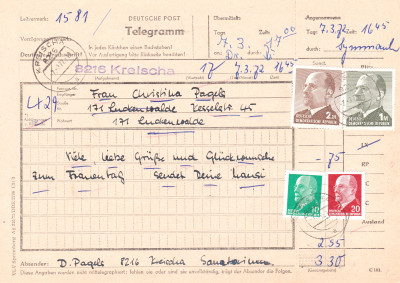 Leitvermerk: 1581
DEUTSCHE POST
Telegramm
Dienstliche Rückfragen
Angenommen
Tag Zeit
7.3. 17 00
Tag Zeit
7.3.72 1645
In jedes Kästchen einen Buchstaben!
Für Absenderangabe bitte Rückseite beachten!
KREISCHA
8216 Kreischa
17 7.3.72 1645
L+29
Frau Christina Pagels
171 Luckenwalde Kesselstr. 45
171 Luckenwalde
2 DM
1 DM
DEUTSCHE DEMOKRATISCHE REPUBLIK
Viele, liebe Grüße und Glückwünsche
zum Frauentag sendet Deine Mausi
-75
RP
10
20
Ausland
2.55
3.30
Absender: D. Pagels 8216 Kreischa Sanatorium
Diese Angaben werden nicht mittelegraphiert; fehlen sie oder sind sie unvollständig, trägt der Absender die Folgen.